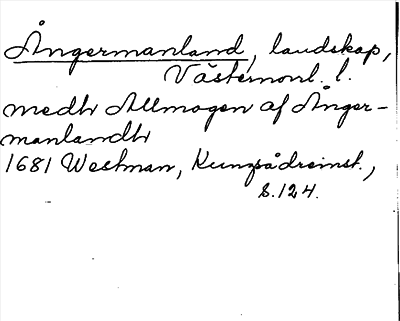 Ångermanland, landskap,
Västernorrl. l.
medh Allmogen af Ånger-
manlandh
1681 Westman, Kungsådreinst.,
s.124.